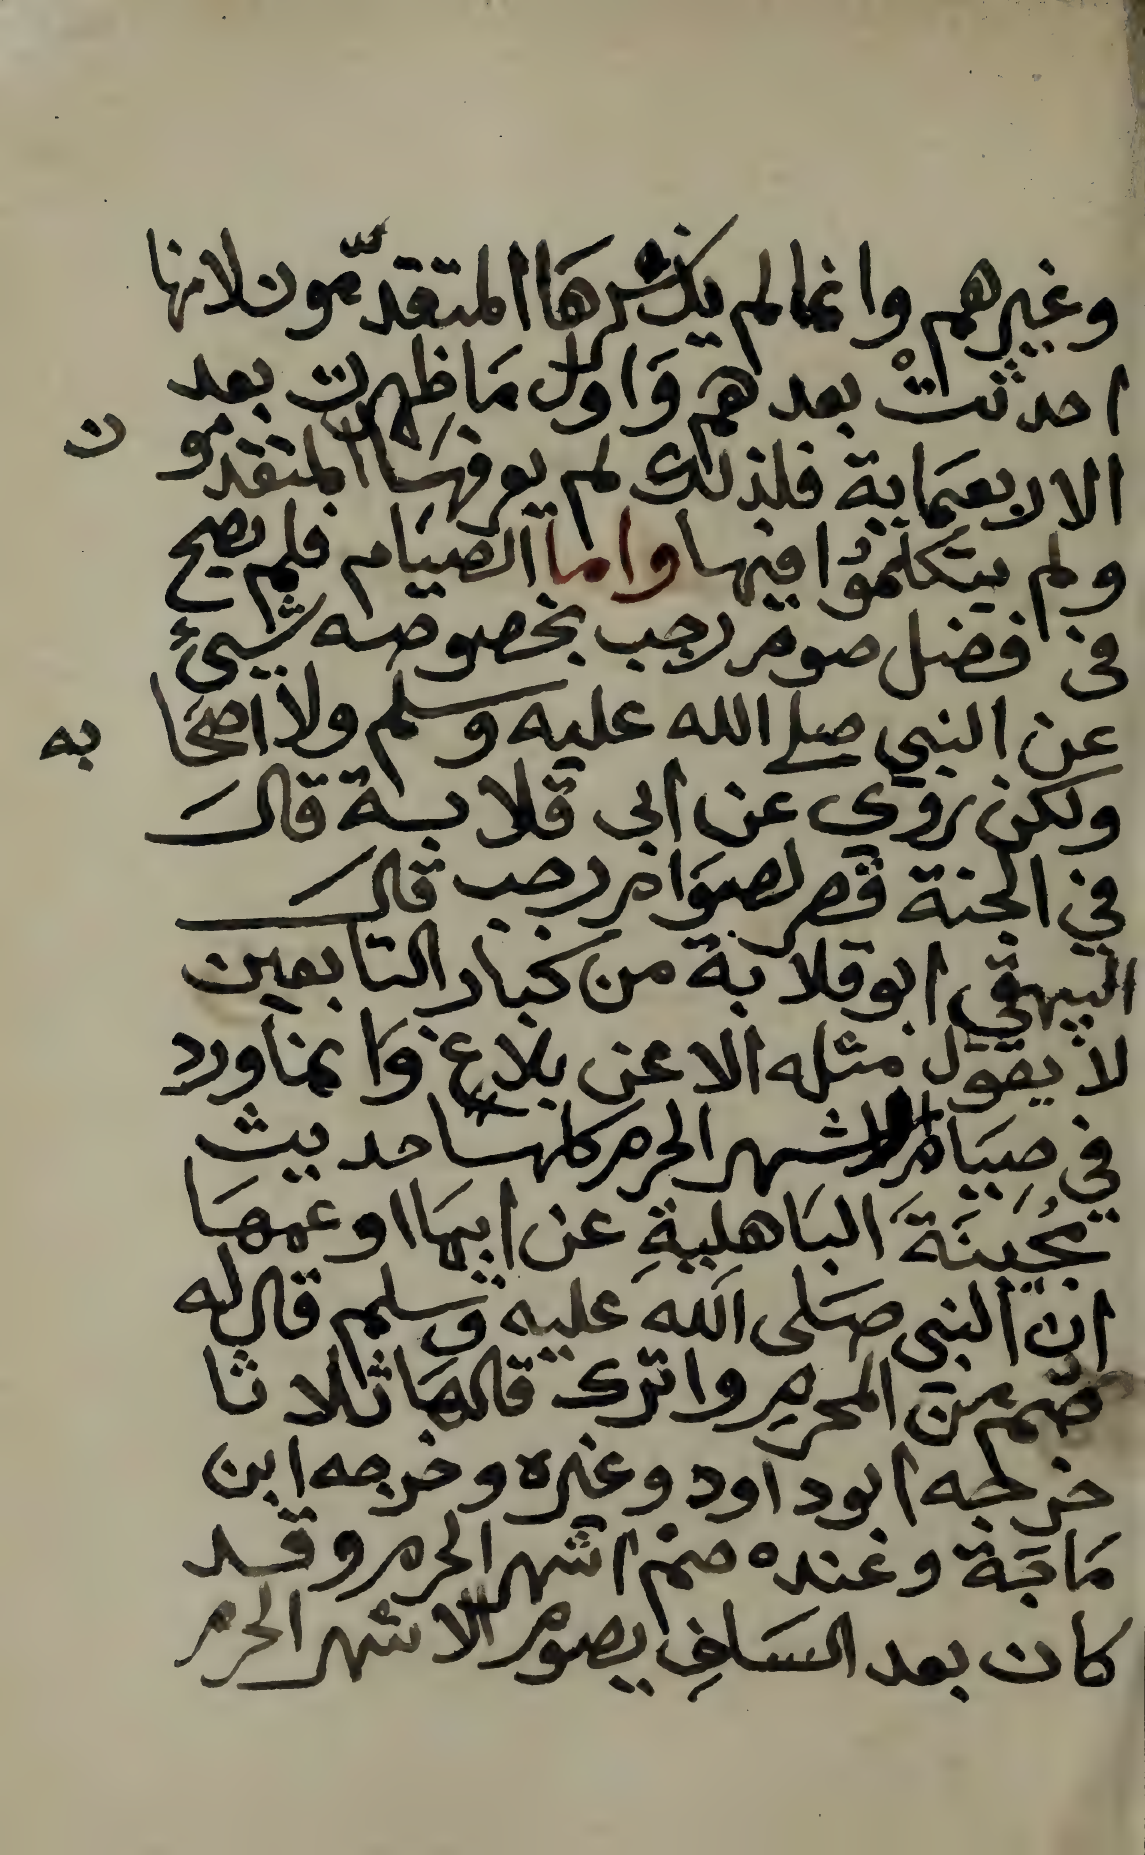 وغيرهم وانما لم يذكرها المتقدّمون لانها
احدثتْ بعدهم وَاول مَا ظهرت بعد
الاربعمَاية فلذلك لم يعرفهَا المتقدمون
ولم يتكلموا فيها واما الصيَام فلم يصح
في فضل صوم رجب بخصوصه شيئ
عن النبي صلى الله عليه وسلم ولا اصحابه
ولكن روي عن ابي قلابة قال
في الجنة قصر لصوَام رجب قال
البيهقي ابو قلابة من كبار التابعين
لا يقول مثله الا عن بلاغ وَانما ورد
في صيَام الاشهر الحرم كلها حديث
مُجيبَةَ البَاهليةِ عن ابيهَا او عمهَا
ان النبي صَلى الله عليه وسلم قال له
صُم من المحرم واترك قالهَا ثلاثا
خرجه ابو داود وغيره وخرجه ابن
مَاجَة وعنده صم اشهر الحرم وقد
كان بعد السَلفِ يصوم الاشهر الحرم